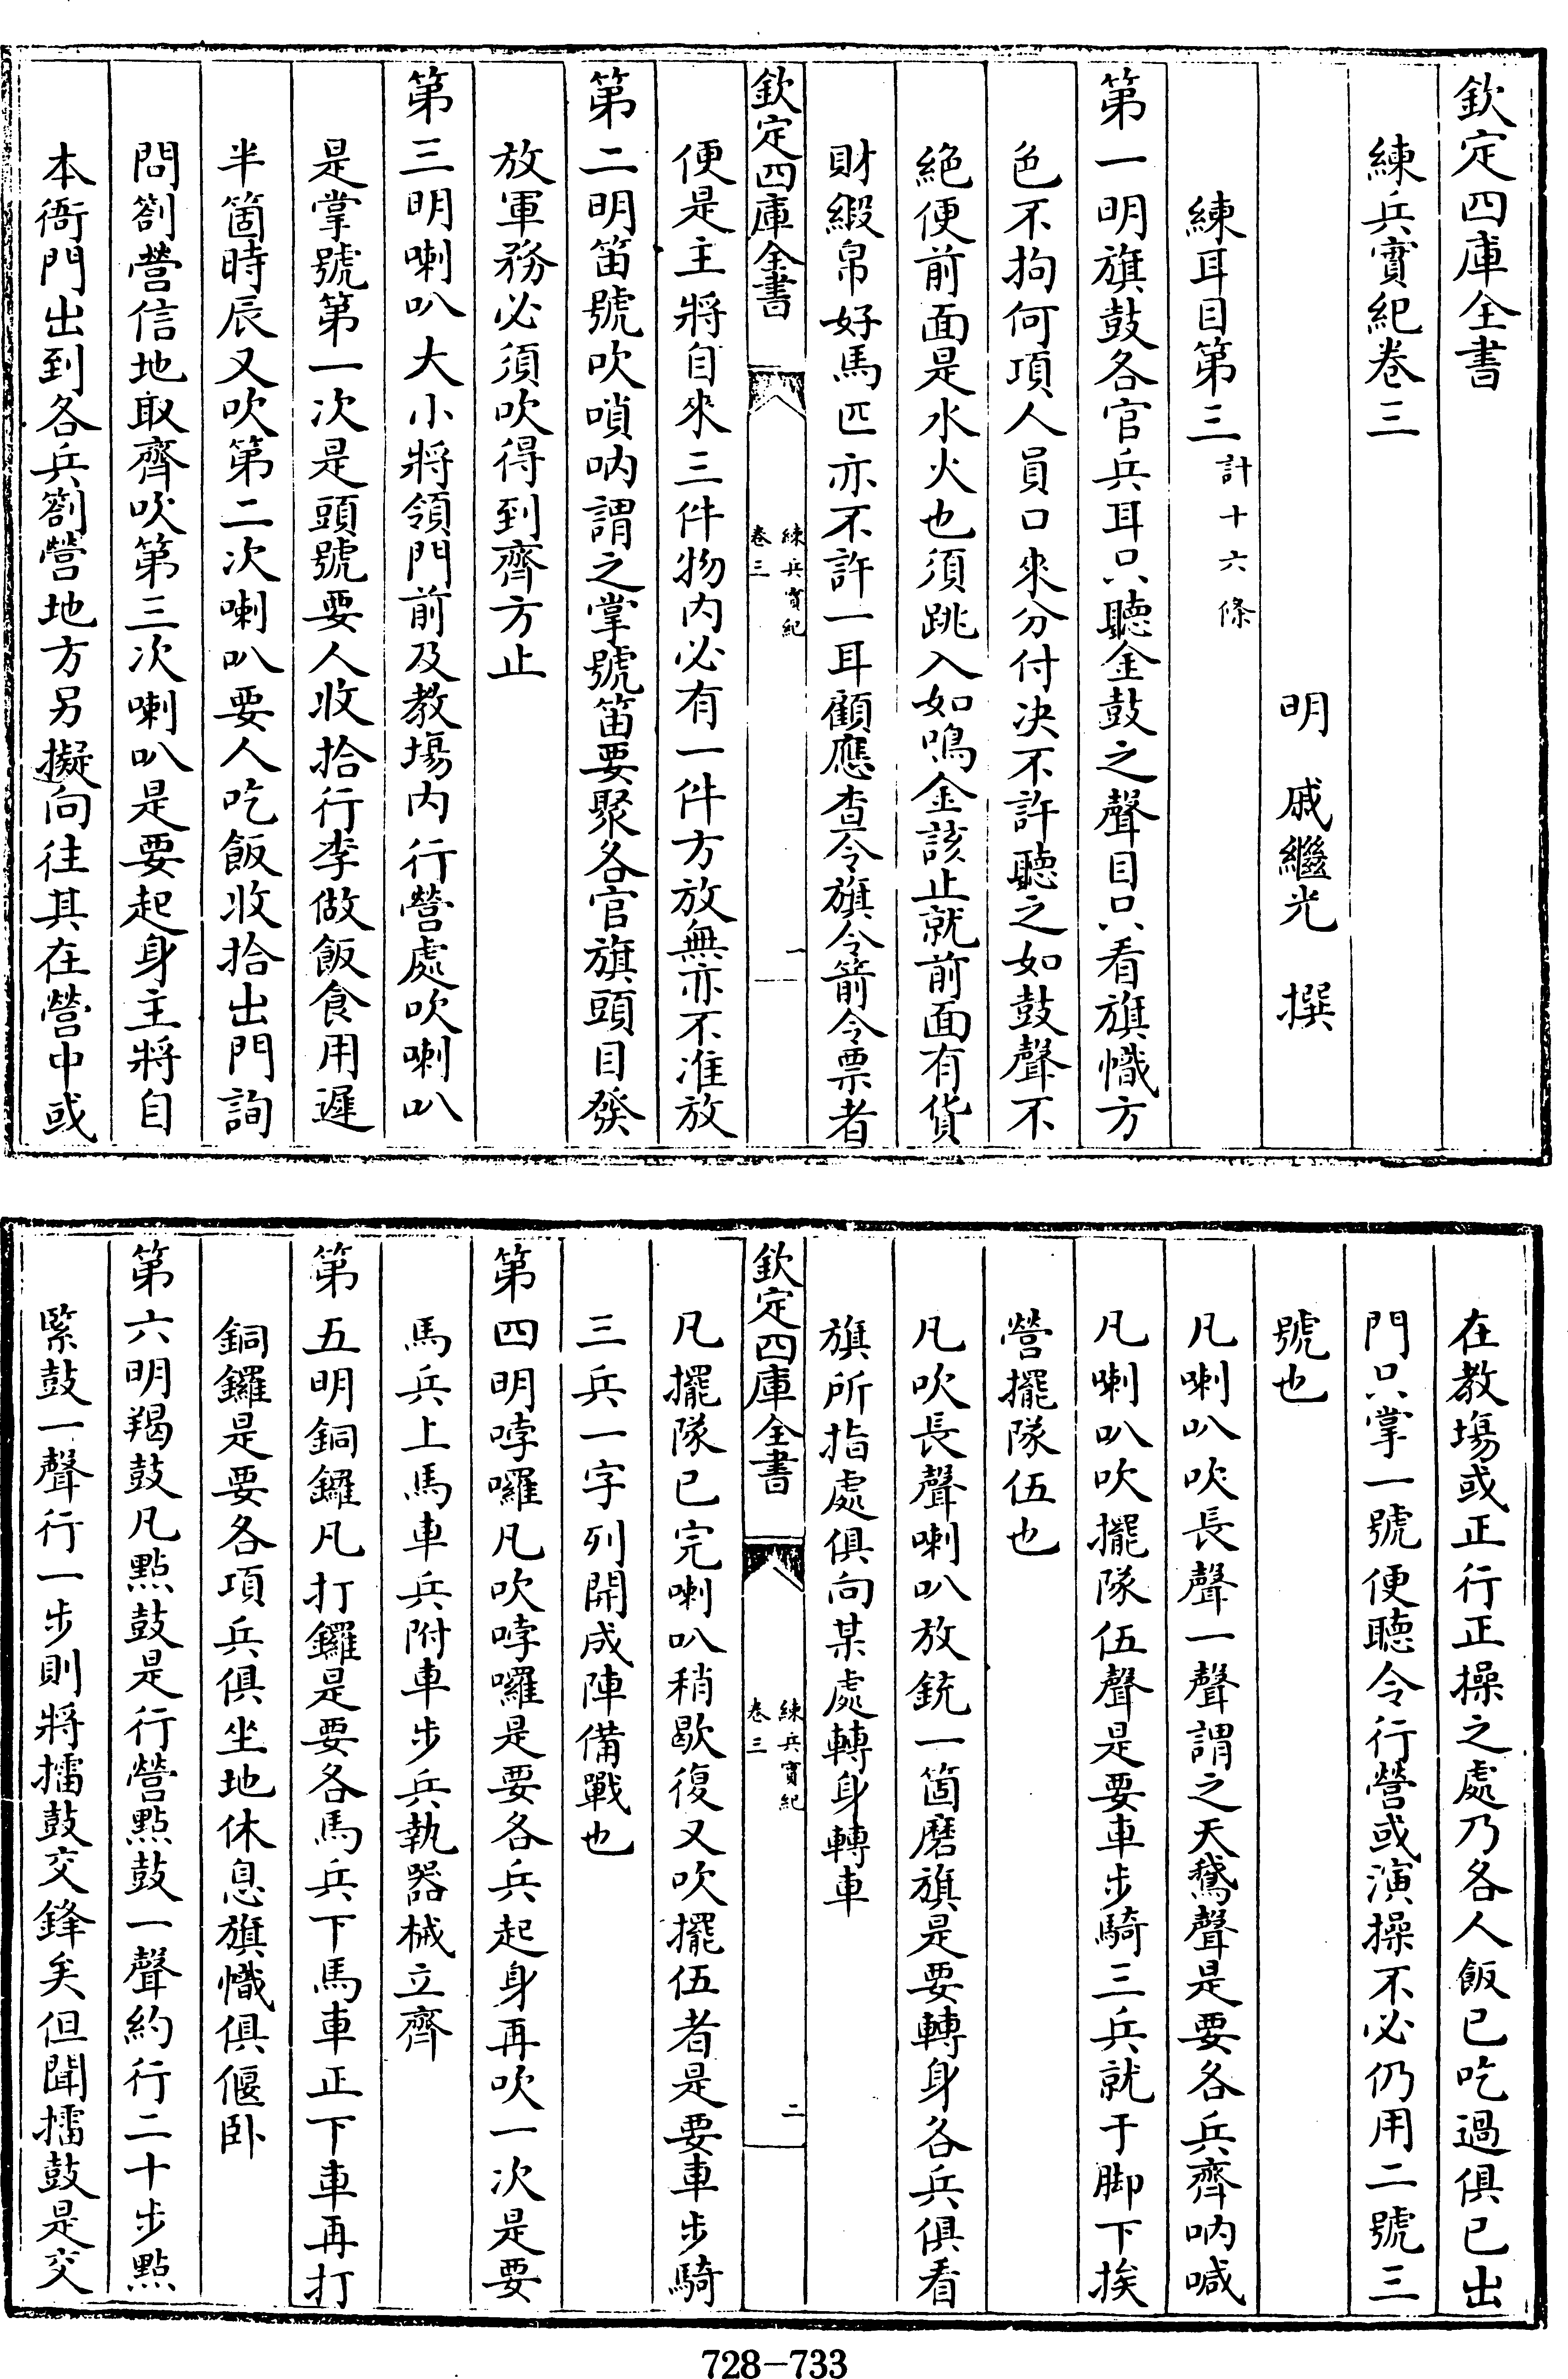 欽定四庫全書
練兵實紀卷三
明 戚繼光 撰
練耳目第三計十六條
第一明旗鼓各官兵耳只聽金鼓之聲目只看旗幟方
色不拘何項人員口來分付決不許聽之如鼓聲不
絕便前面是水火也須跳入如鳴金該止就前面有貨
財緞帛好馬匹亦不許一耳顧應查令旗令箭令票者
欽定四庫全書
練兵實紀
卷三
一
便是主將自來三件物內必有一件方放無亦不准放
第二明笛號吹嗩吶謂之掌號笛要聚各官旗頭目發
放軍務必須吹得到齊方止
第三明喇叭大小將領門前及教塲內行營處吹喇叭
是掌號第一次是頭號要人收拾行李做飯食用遲
半箇時辰又吹第二次喇叭要人吃飯收拾出門詢
問劄營信地取齊吹第三次喇叭是要起身主將自
本衙門出到各兵劄營地方另擬向往其在營中或
在教塲或正行正操之處乃各人飯已吃過俱已出
門只掌一號便聽令行營或演操不必仍用二號三
號也
凡喇叭吹長聲一聲謂之天鵞聲是要各兵齊吶喊
凡喇叭吹擺隊伍聲是要車步騎三兵就于脚下挨
營擺隊伍也
凡吹長聲喇叭放銃一箇磨旗是要轉身各兵俱看
旗所指處俱向某處轉身轉車
欽定四庫全書
練兵實紀
卷三
二
凡擺隊已完喇叭稍歇復又吹擺伍者是要車步騎
三兵一字列開成陣備戰也
第四明哱囉凡吹哱囉是要各兵起身再吹一次是要
馬兵上馬車兵附車步兵執器械立齊
第五明銅鑼凡打鑼是要各馬兵下馬車正下車再打
銅鑼是要各項兵俱坐地休息旗幟俱偃卧
第六明羯鼓凡點鼓是行營點鼓一聲約行二十步點
緊鼓一聲行一步則將擂鼓交鋒矣但聞擂鼓是交
728-733